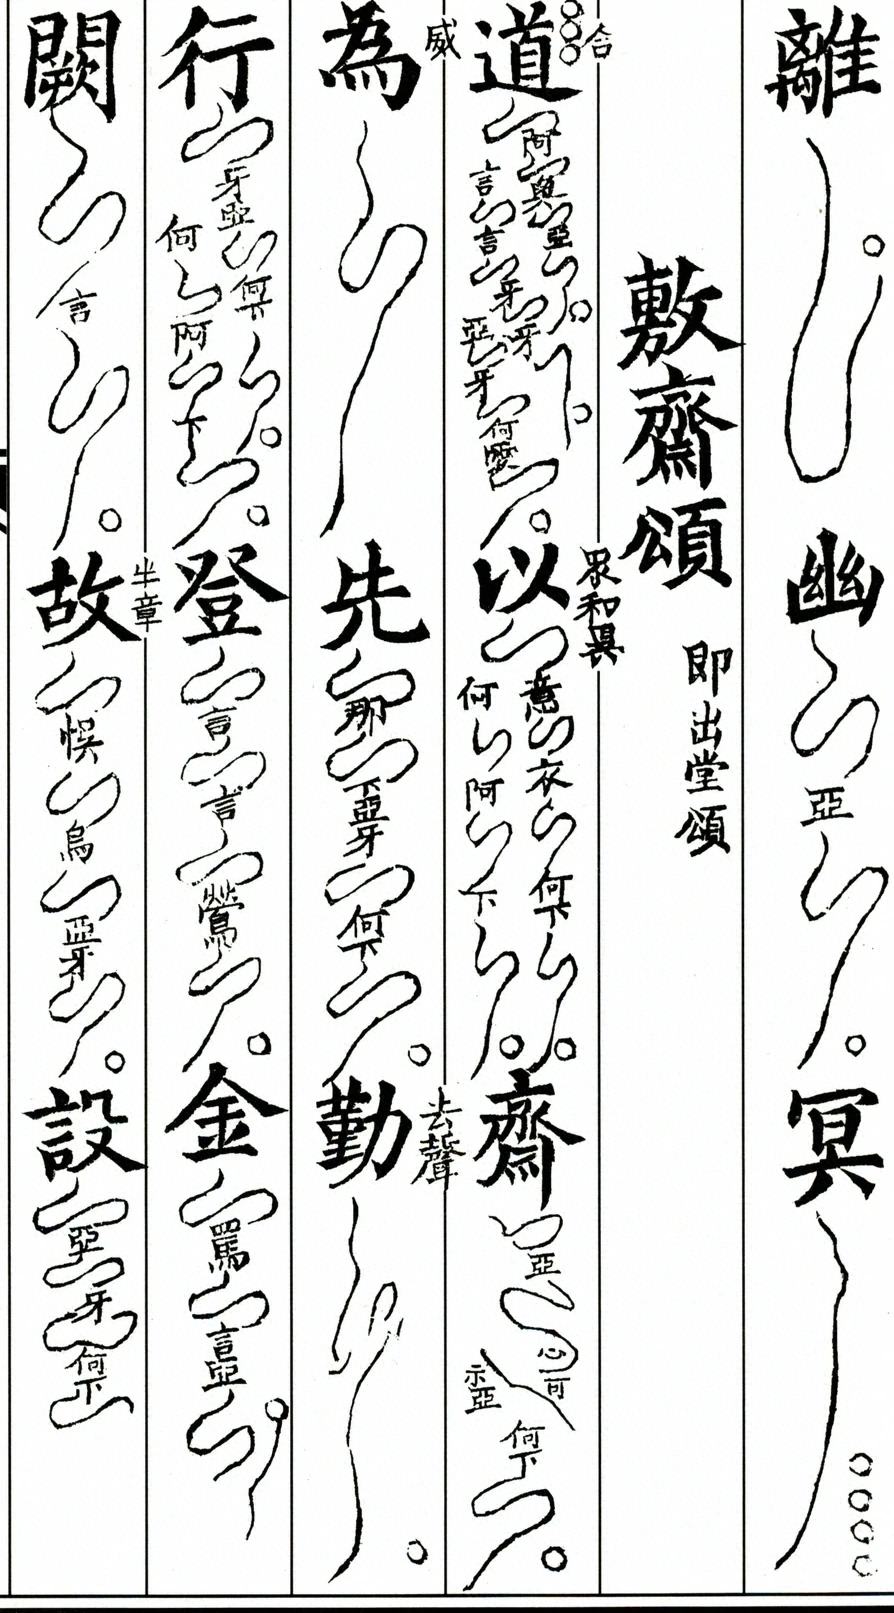 離幽亞冥
敷齋頌 即出堂頌
道合阿與亞言言牙牙牙何以眾和畏意衣何下何阿下齋亞心可示亞何下
為威先那下亞牙何下勤去聲
行牙亞何下何阿下登言言鶯金罵言亞
闕言故半章悞烏亞牙設亞牙何下